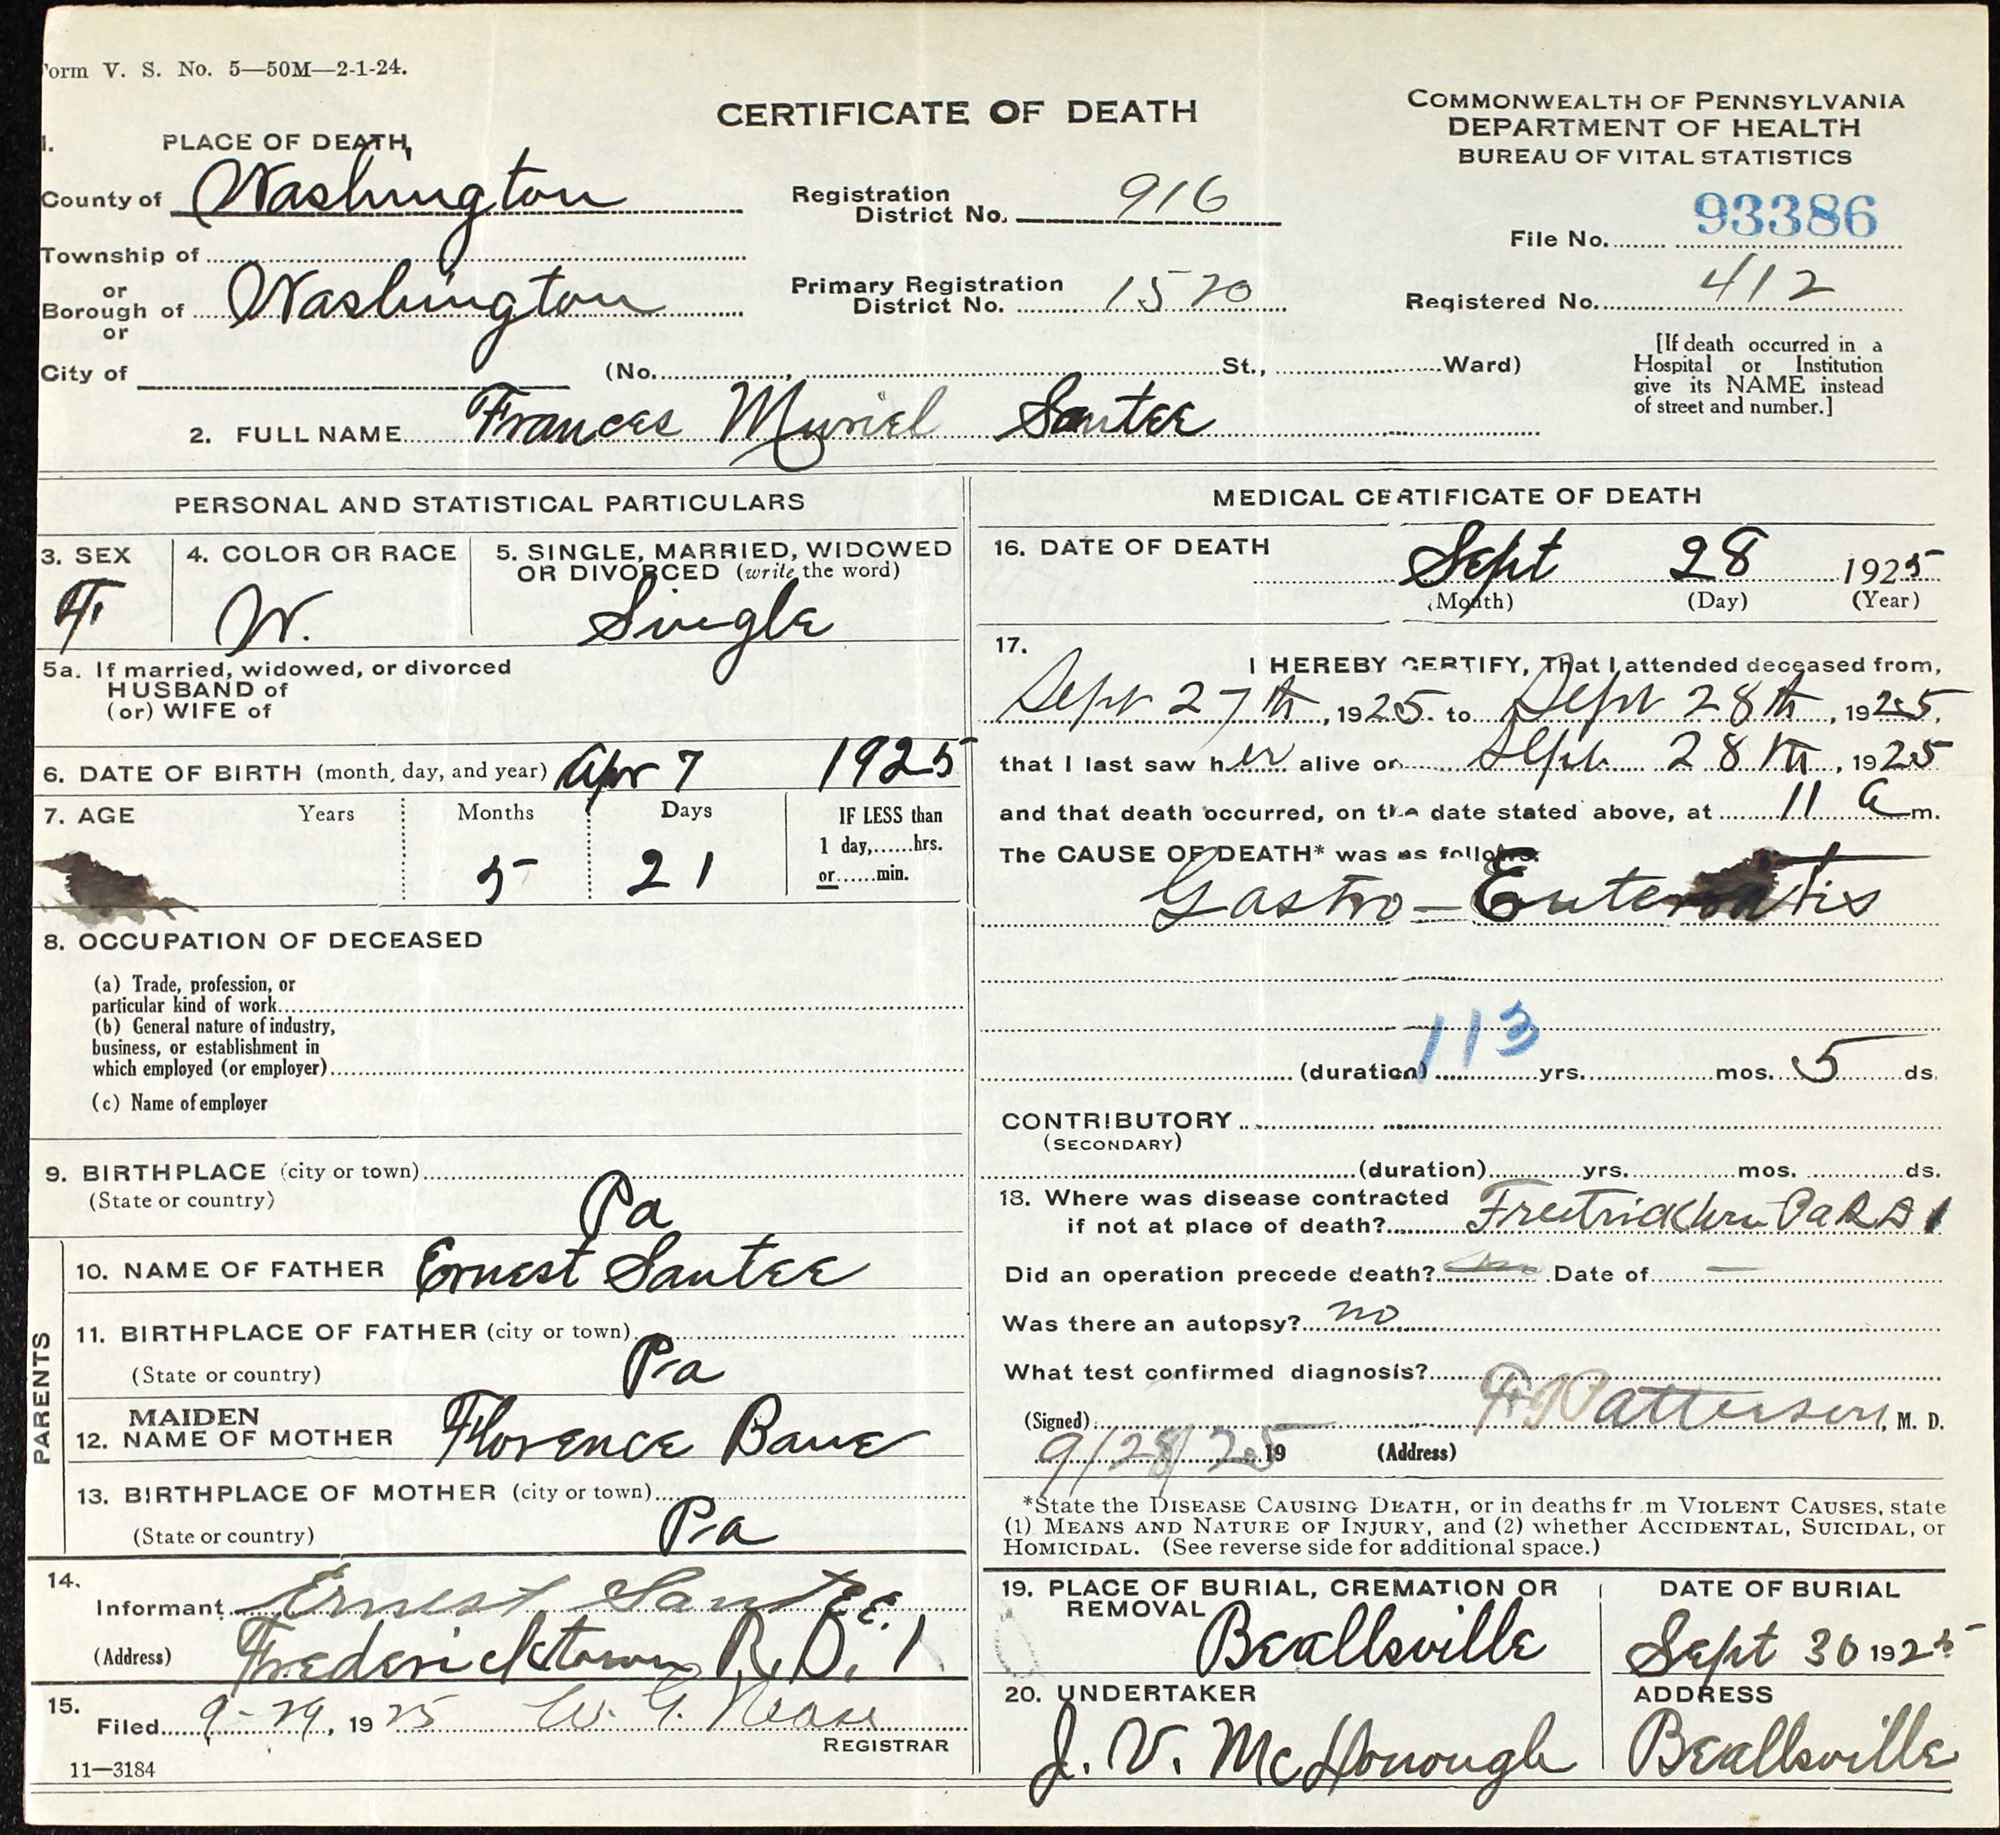 orm V. S. No. 5—50M—2-1-24.
CERTIFICATE OF DEATH
COMMONWEALTH OF PENNSYLVANIA
DEPARTMENT OF HEALTH
BUREAU OF VITAL STATISTICS
1. PLACE OF DEATH
County of Washington
Registration District No. 916
File No. 93386
Township of
or
Borough of Washington
or
Primary Registration District No. 1520
Registered No. 412
City of (No. , St., Ward)
[If death occurred in a
Hospital or Institution
give its NAME instead
of street and number.]
2. FULL NAME Frances Muriel Santee
PERSONAL AND STATISTICAL PARTICULARS
3. SEX F
4. COLOR OR RACE W.
5. SINGLE, MARRIED, WIDOWED
OR DIVORCED (write the word)
Single
5a. If married, widowed, or divorced
HUSBAND of
(or) WIFE of
6. DATE OF BIRTH (month, day, and year) Apr 7 1925
7. AGE Years Months Days IF LESS than
1 day,......hrs.
or......min.
5 21
8. OCCUPATION OF DECEASED
(a) Trade, profession, or
particular kind of work
(b) General nature of industry,
business, or establishment in
which employed (or employer)
(c) Name of employer
9. BIRTHPLACE (city or town)
(State or country) Pa
PARENTS
10. NAME OF FATHER Ernest Santee
11. BIRTHPLACE OF FATHER (city or town)
(State or country) Pa
12. MAIDEN NAME OF MOTHER Florence Bane
13. BIRTHPLACE OF MOTHER (city or town)
(State or country) Pa
14.
Informant Ernest Santee.
(Address) Fredericktown R.D. 1
15.
Filed 9-29, 1925 W. G. Nease
REGISTRAR
11—3184
MEDICAL CERTIFICATE OF DEATH
16. DATE OF DEATH Sept 28 1925
(Month) (Day) (Year)
17.
I HEREBY CERTIFY, That I attended deceased from,
Sept 27th, 1925. to Sept 28th, 1925,
that I last saw her alive on Sept. 28th, 1925
and that death occurred, on the date stated above, at 11 a m.
The CAUSE OF DEATH* was as follows:
Gastro-
113
(duration) yrs. mos. 5 ds.
CONTRIBUTORY
(SECONDARY)
(duration) yrs. mos. ds.
18. Where was disease contracted
if not at place of death? Pa R D 1
Did an operation precede death? Date of —
Was there an autopsy? no
What test confirmed diagnosis?
(Signed) Patterson, M. D.
9/28/25 19 (Address)
*State the DISEASE CAUSING DEATH, or in deaths fr m VIOLENT CAUSES, state
(1) MEANS AND NATURE OF INJURY, and (2) whether ACCIDENTAL, SUICIDAL, or
HOMICIDAL. (See reverse side for additional space.)
19. PLACE OF BURIAL, CREMATION OR
REMOVAL
Beallsville
DATE OF BURIAL
Sept 30 1925
20. UNDERTAKER
J. V. McDonough
ADDRESS
Beallsville